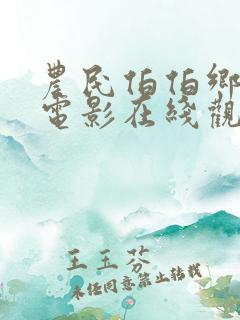 農民伯伯鄉
電影在綫觀
王玉芬
未经同意禁止转载